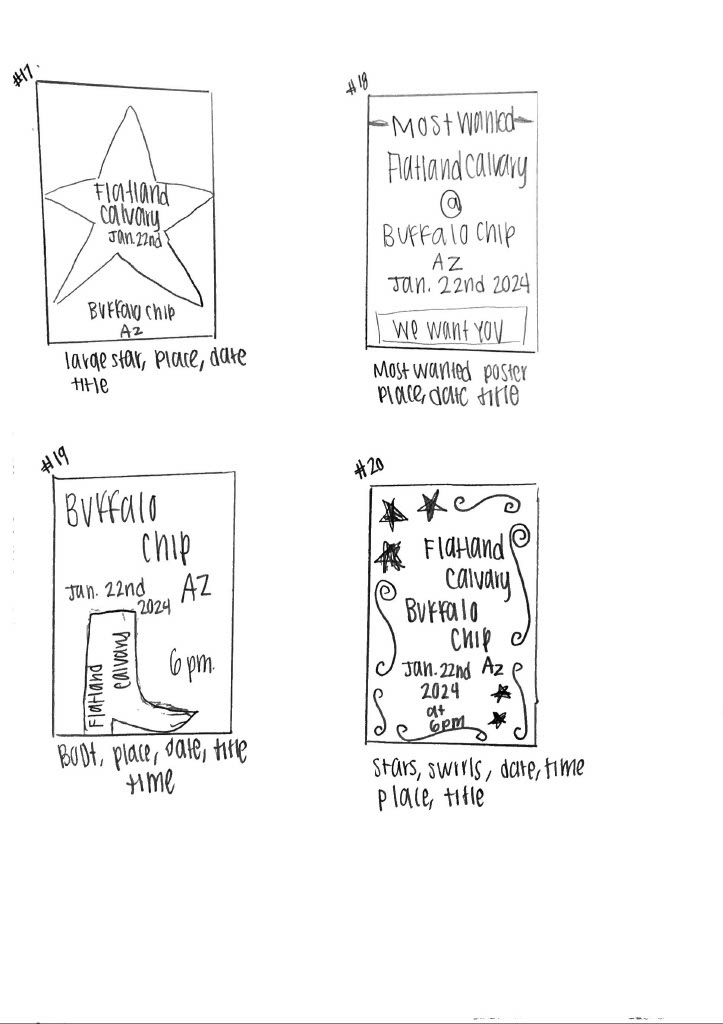 #17
Flatland
Calvary
Jan. 22nd
Buffalo Chip
AZ
large star, place, date
title
#18
Most Wanted
Flatland Calvary
@
Buffalo Chip
AZ
Jan. 22nd 2024
We want you
Most Wanted poster
place, date title
#19
Buffalo
Chip
Jan. 22nd AZ
2024
Flatland
Calvary
6 pm.
Boot, place, date, title
time
#20
Flatland
Calvary
Buffalo
Chip
Jan. 22nd AZ
2024
at
6pm
stars, swirls, date, time
place, title